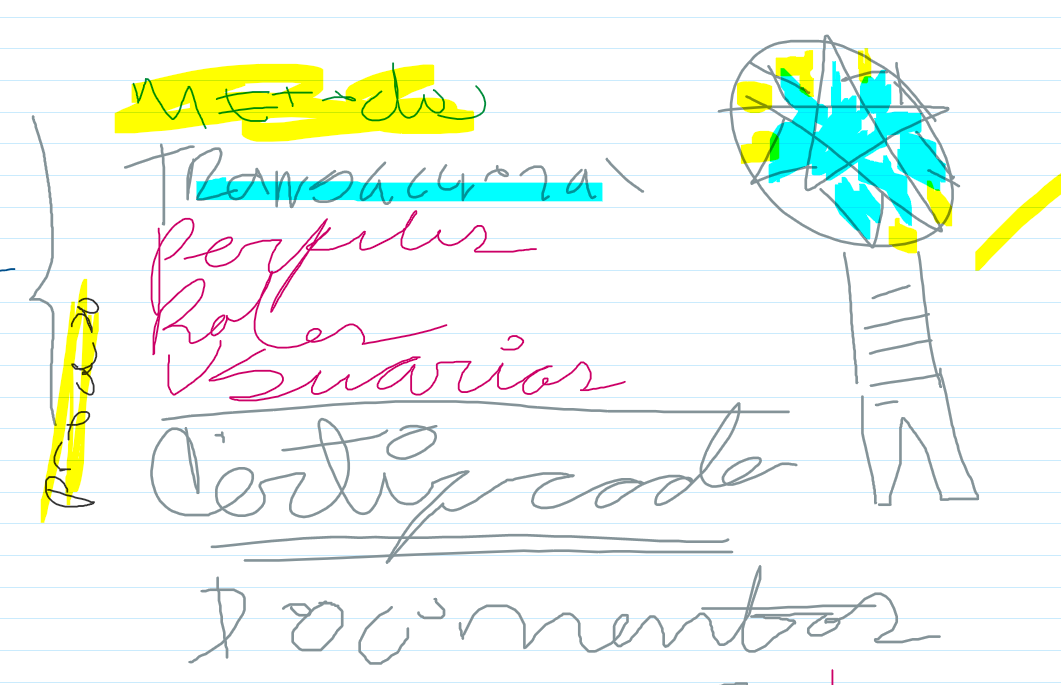 Metodo
Transaccional
Perfiles
Roles
Usuarios
Certificado
Documentos